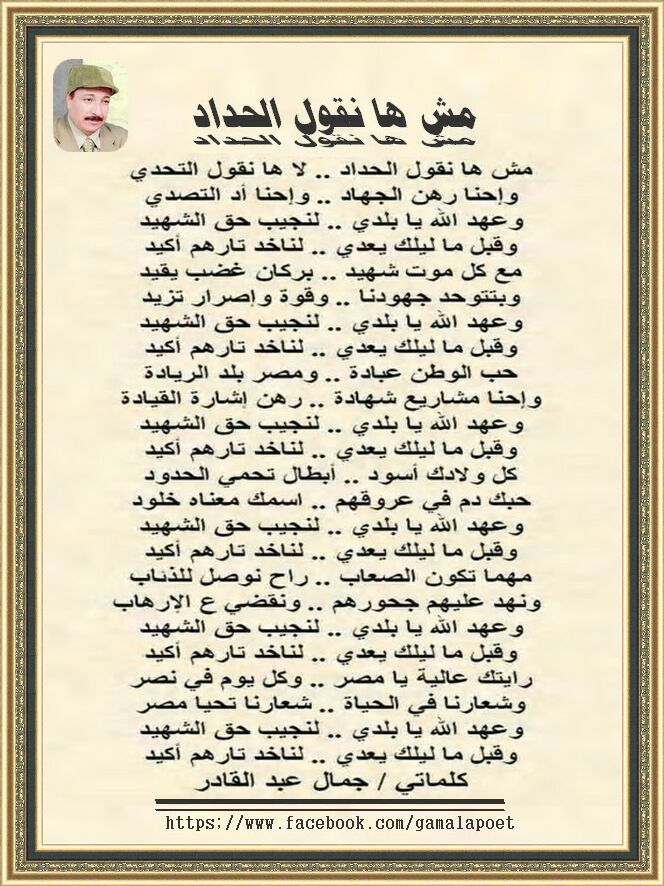 مش ها نقول الحداد
مش ها نقول الحداد .. لا ها نقول التحدي
وإحنا رهن الجهاد .. وإحنا أد التصدي
وعهد الله يا بلدي .. لنجيب حق الشهيد
وقبل ما ليلك يعدي .. لناخد تارهم أكيد
مع كل موت شهيد .. بركان غضب يقيد
وبتتوحد جهودنا .. وقوة وإصرار تزيد
وعهد الله يا بلدي .. لنجيب حق الشهيد
وقبل ما ليلك يعدي .. لناخد تارهم أكيد
حب الوطن عبادة .. ومصر بلد الريادة
وإحنا مشاريع شهادة .. رهن إشارة القيادة
وعهد الله يا بلدي .. لنجيب حق الشهيد
وقبل ما ليلك يعدي .. لناخد تارهم أكيد
كل ولادك أسود .. أبطال تحمي الحدود
حبك دم في عروقهم .. اسمك معناه خلود
وعهد الله يا بلدي .. لنجيب حق الشهيد
وقبل ما ليلك يعدي .. لناخد تارهم أكيد
مهما تكون الصعاب .. راح نوصل للذئاب
ونهد عليهم جحورهم .. ونقضي ع الإرهاب
وعهد الله يا بلدي .. لنجيب حق الشهيد
وقبل ما ليلك يعدي .. لناخد تارهم أكيد
رايتك عالية يا مصر .. وكل يوم في نصر
وشعارنا في الحياة .. شعارنا تحيا مصر
وعهد الله يا بلدي .. لنجيب حق الشهيد
وقبل ما ليلك يعدي .. لناخد تارهم أكيد
كلماتي / جمال عبد القادر
https;//www.facebook.com/gamalapoet